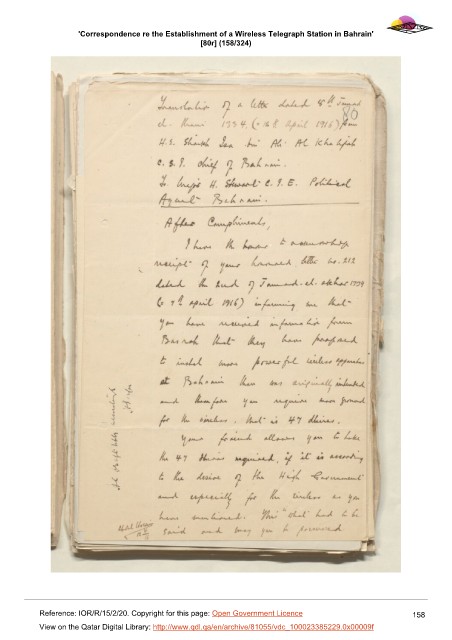 'Correspondence re the Establishment of a Wireless Telegraph Station in Bahrain'
[80r] (158/324)
Translation of a letter dated 5th Jamad
80
el. 1334. (= 8 April 1916) from
H.E. Shaikh Isa bin Ali Al Khalifah
C.S.I. Chief of Bahrain.
To Major H. Stewart C.I.E. Political
Agent Bahrain.
After Compliments,
I have the honour to acknowledge
receipt of your honoured letter no. 212
dated the 2nd of Jamad-el-akhar 1334
(= 7th April 1916) informing me that
you have received information from
Basrah that they have proposed
to instal more powerful wireless apparatus
at Bahrain than was originally intended
and therefore you require more ground
for the wireless. that is 47 dhiras.
Your friend allows you to take
the 47 dhiras required, if it is according
to the desire of the High Government
and especially for the wireless as you
have mentioned. This what had to be
said and may you be preserved
Reference: IOR/R/15/2/20. Copyright for this page: Open Government Licence
158
View on the Qatar Digital Library: http://www.qdl.qa/en/archive/81055/vdc_100023385229.0x00009f